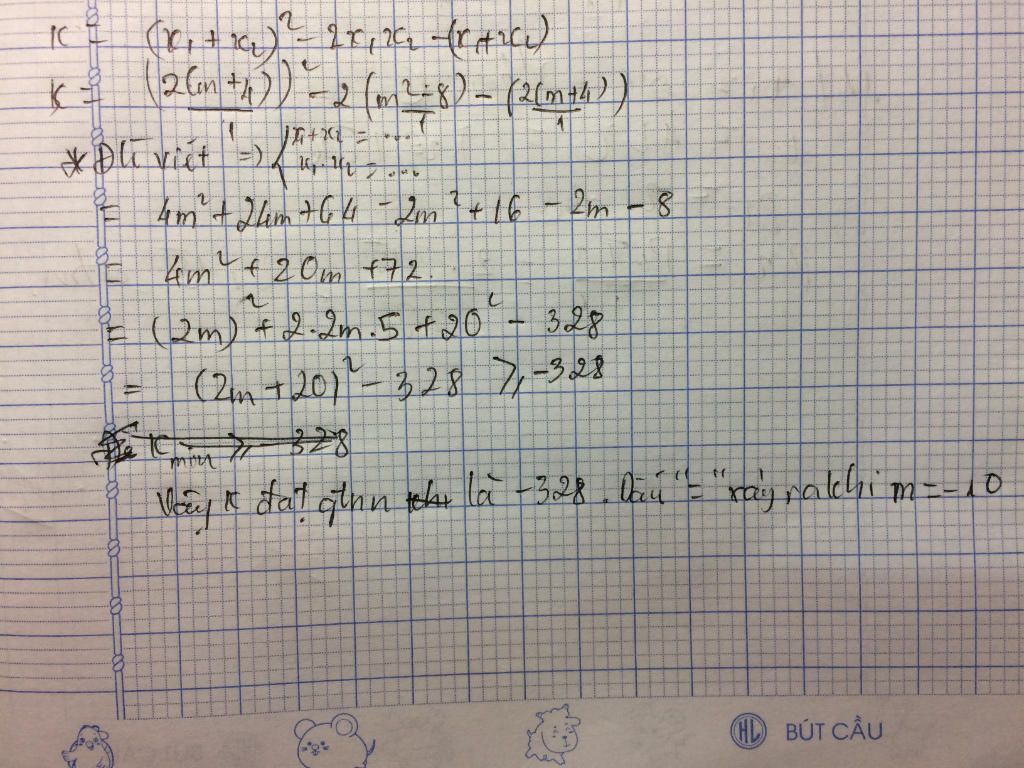 K = (x₁ + x₂)² - 2x₁x₂ - (x₁+x₂)
K = (2(m+4)/1)² - 2(m²-8/1) - (2(m+4)/1)
* Đlí viét => { x₁+x₂ = ...
x₁.x₂ = ...
= 4m² + 24m + 64 - 2m² + 16 - 2m - 8
= 4m² + 20m + 72.
= (2m)² + 2.2m.5 + 20² - 328
= (2m + 20)² - 328 ⩾ -328
K min ⩾ 328
Vậy K đạt gtnn là -328. Dấu "=" xảy ra khi m = -10
HL BÚT CẦU